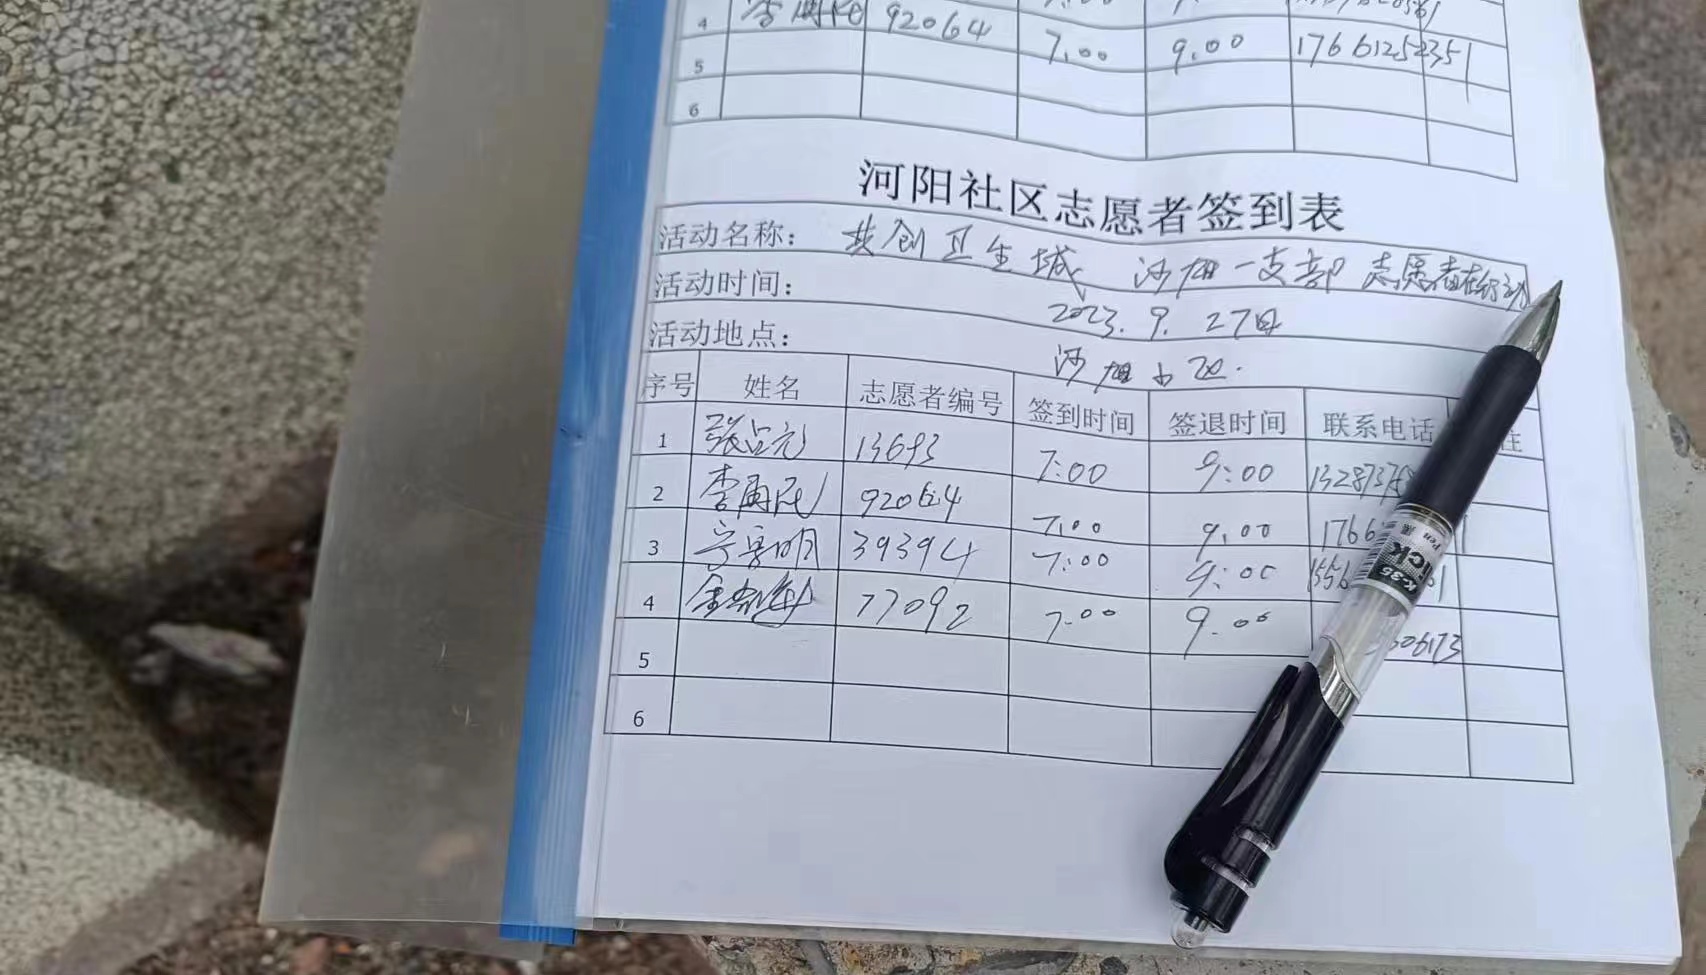 4 92064 7.00 9.00 17661252351
5
6
河阳社区志愿者签到表
活动名称： 共创卫生城 沙烟一支部 志愿者在行动
活动时间： 2023.9.27日
活动地点： 沙烟小区.
序号 姓名 志愿者编号 签到时间 签退时间 联系电话 注
1 张占元 13693 7:00 9:00 1328737
2 李周民 92064 7.00 9.00 1766
3 39394 7:00 9:00 1556
4 77092 7.00 9.00 306173
5
6
Pen
ick
K-35